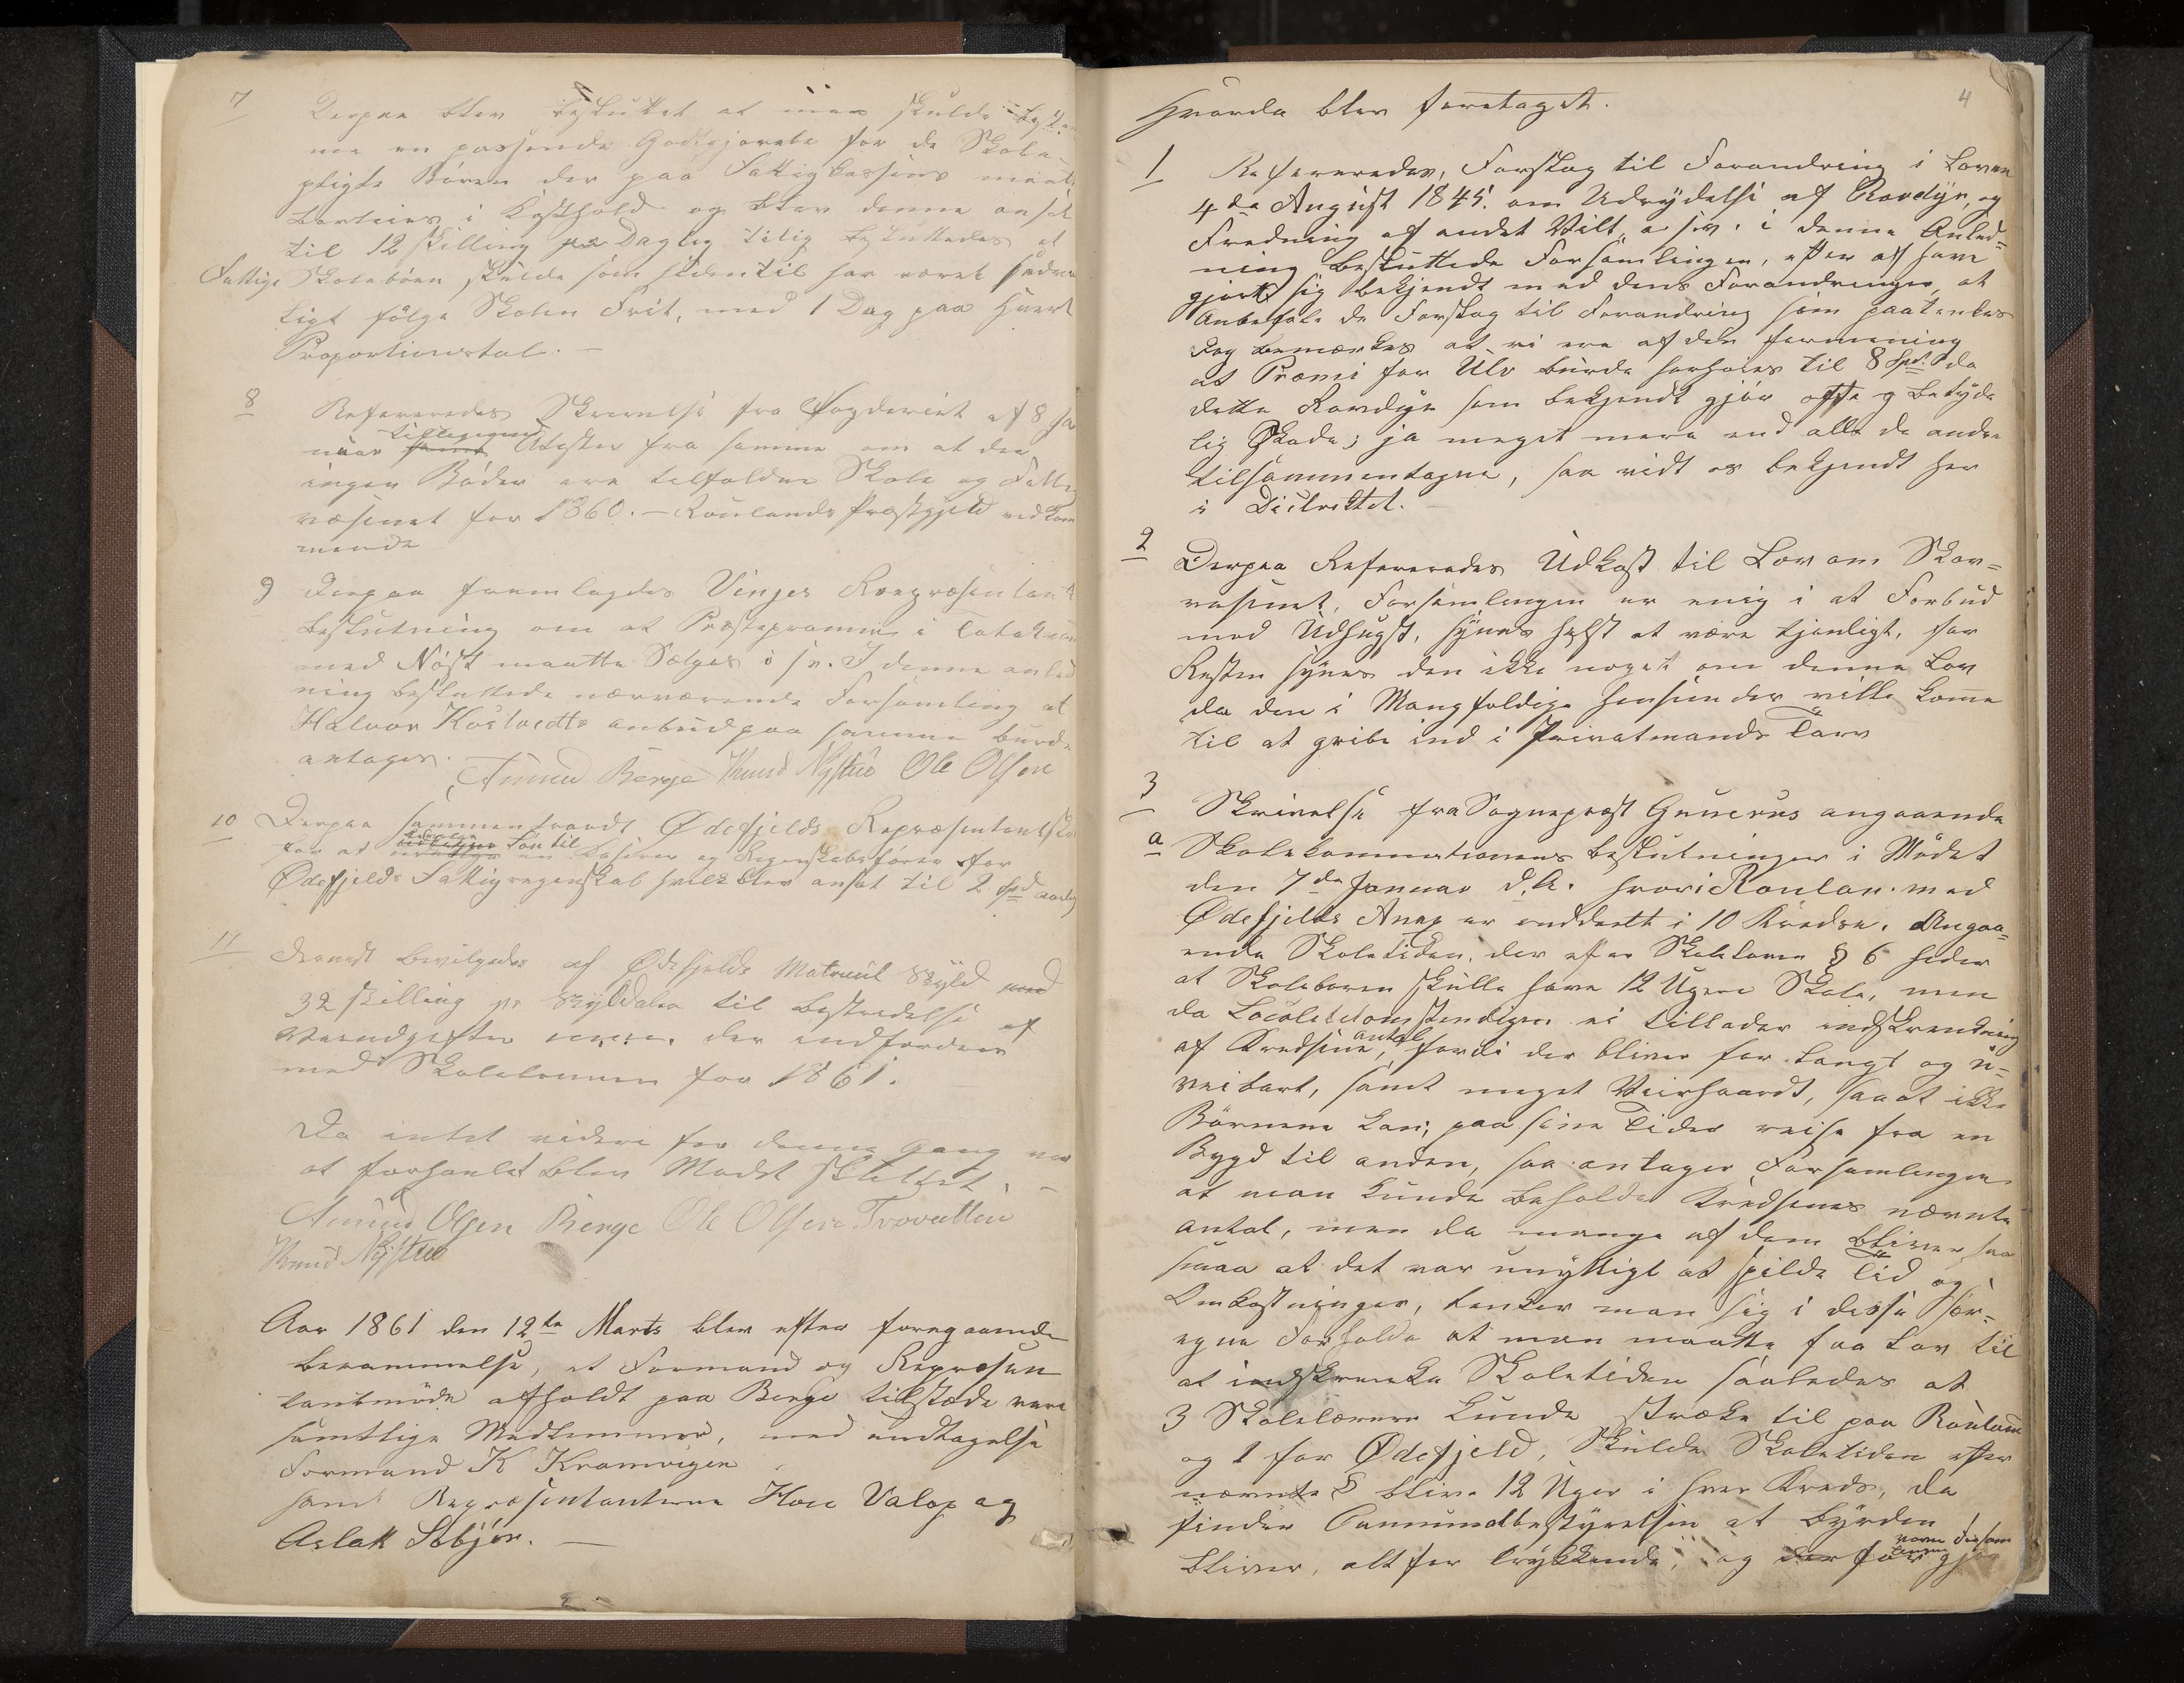 7 Derpaa blev besluttet at man skulde
me en passende Godtgjørelse for de Skole-
pligte Børen der paa Fattigkassens
borteies i Kosthold og blev denne ansat
til 12 skilling pr Dag besluttedes at
Fattige Skolebørn skulde som hidentil har været
ligt følge Skolen Frit, med 1 Dag paa Hvert
Proportionstal. —
8 Refereredes Skrivelse fra Fogderiet af 8 Ja
nuar tilligemed Atester fra samme om at der
ingen Bøder ere tilfaldne Skole og Fattig
væsenet for 1860. — Raulands Præstegjeld vedkom
mende
9 Derpaa fremlagdes Vinjes Repræsentant
Beslutning om at Præsteprammen i Totak
med Nøst maatte Sælges o s v. I denne anled
ning besluttede nærværende Forsamling at
Halvor Kostvedts anbud paa samme burde
antages.
Aamund Berge Knud Nystue Ole Olsen
10 Derpaa sammentraadt Ødefjelds Repræsentantskab
for at udvælge en Kaserer og Regnskabsfører for
Ødefjelds Fattigregnskab hvilk blev ansat til 2 Spd aarlig
11 Dernest bevilgedes af Ødefjelds Matricul Skyld
32 skilling pr Skylddaler til bestridelse af
der endfordres
med Skolelønnen for 1861.
Da intet videre for denne Gang var
at forhandlet blev Mødet sluttet. —
Aamund Olsen Berge Ole Olsen Trovatten
Knud Nystue
Aar 1861 den 12te Marts blev efter foregaaende
berammelse, et Formand og Repræsen
tantmøde afholdt paa Berge tilstæde vare
samtlige Medlemmer, med undtagelse
Formand K Kromvigen
samt Repræsentanterne Hove Valop og
Aslak Sebjør. —
4
Hvorda blev foretaget.
1 Refereredes, Forslag til Forandring i Loven
4de August 1845. om Udrydelse af Rovdyr, og
Fredning af andet Vilt, o s v. i denne Anled=
ning besluttede Forsamlingen, efter at have
gjort sig bekjendt med dens Forandringer, at
Anbefale de Forslag til Forandring som paatænkes
Dog bemærkes at vi ere af den formening
at Præmi for Ulv burde forhøies til 8 Spd. da
dette Rovdyr som bekjendt gjør ofte g betyde
lig Skade; ja meget mere end alle de andre
tilsammentagne, saa vidt os bekjendt her
i Distriktet.
2 Derpaa Refereredes Udkast til Lov om Skov=
vesenet, Forsamlingen er enig i at Forbud
mod Udhugst, synes helst at være tjenligt, for
Resten synes den ikke noget om denne Lov
da den i Mangfoldige Hensender ville komme
til at gribe ind i Privatmands Tarv
3 Skrivelse fra Sognepræst Gunerus angaaende
a Skolekommisionens beslutninger i Mødet
den 7de Januar d. A. hvori Roulan. med
Ødefjelds Anex er inddeelt i 10 Kredse. Angaa=
ende Skoletiden, der efter Skoleloven § 6 heder
at Skolebørn skulle have 12 Ugers Skole, men
da Localetetomstendigher ei tillader indskrenkning
af Kredsene antal, fordi der bliver for langt og u=
veibart, samt meget Veirhaardt, saa at ikke
Børnene kan, paa sine Tider reise fra en
Bygd til anden, saa antager Forsamlingen
at man kunde beholde Kredsenes nævnte
antal, men da mange af dem bliver saa
smaa at det var unyttigt at spilde Tid og
Omkostninger, tenker man sig i desse sør=
egne Forholde at man maatte faa Lov til
at indskrenke Skoletiden saaledes at
3 Skolelærere kunde strække til paa Roulan
og 1 for Ødefjeld, Skulde Skoletiden efter
nævnte § blive 12 Uger i hver Kreds, da
finder Communalbestyrelsen at byrden
bliver, altfor trykkende, og derfor gjør